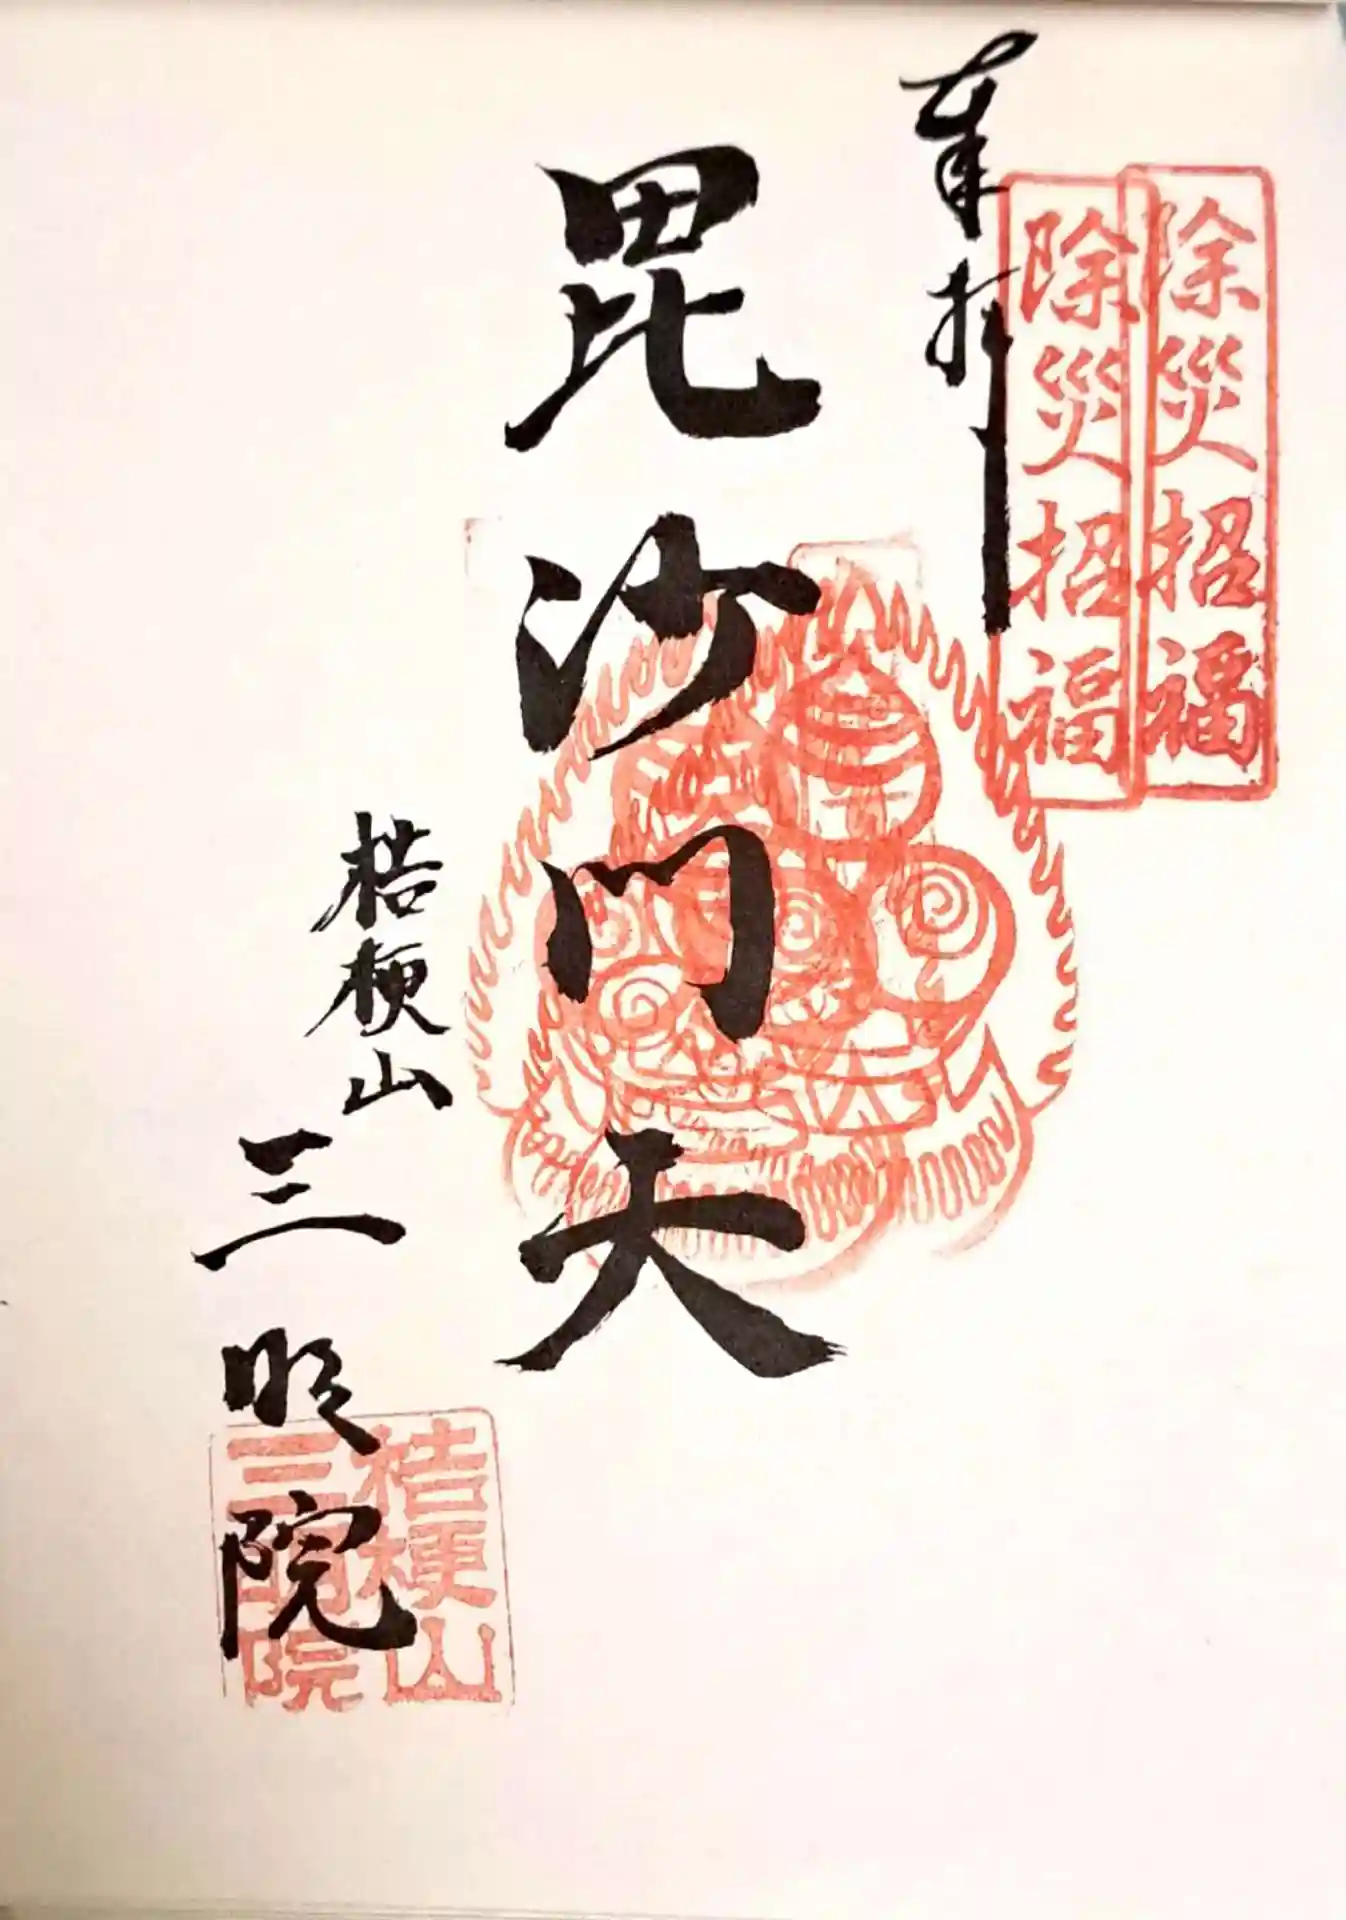 除災招福
除災招福
奉拝
毘沙門天
桔梗山
三明院
桔梗山
三明院